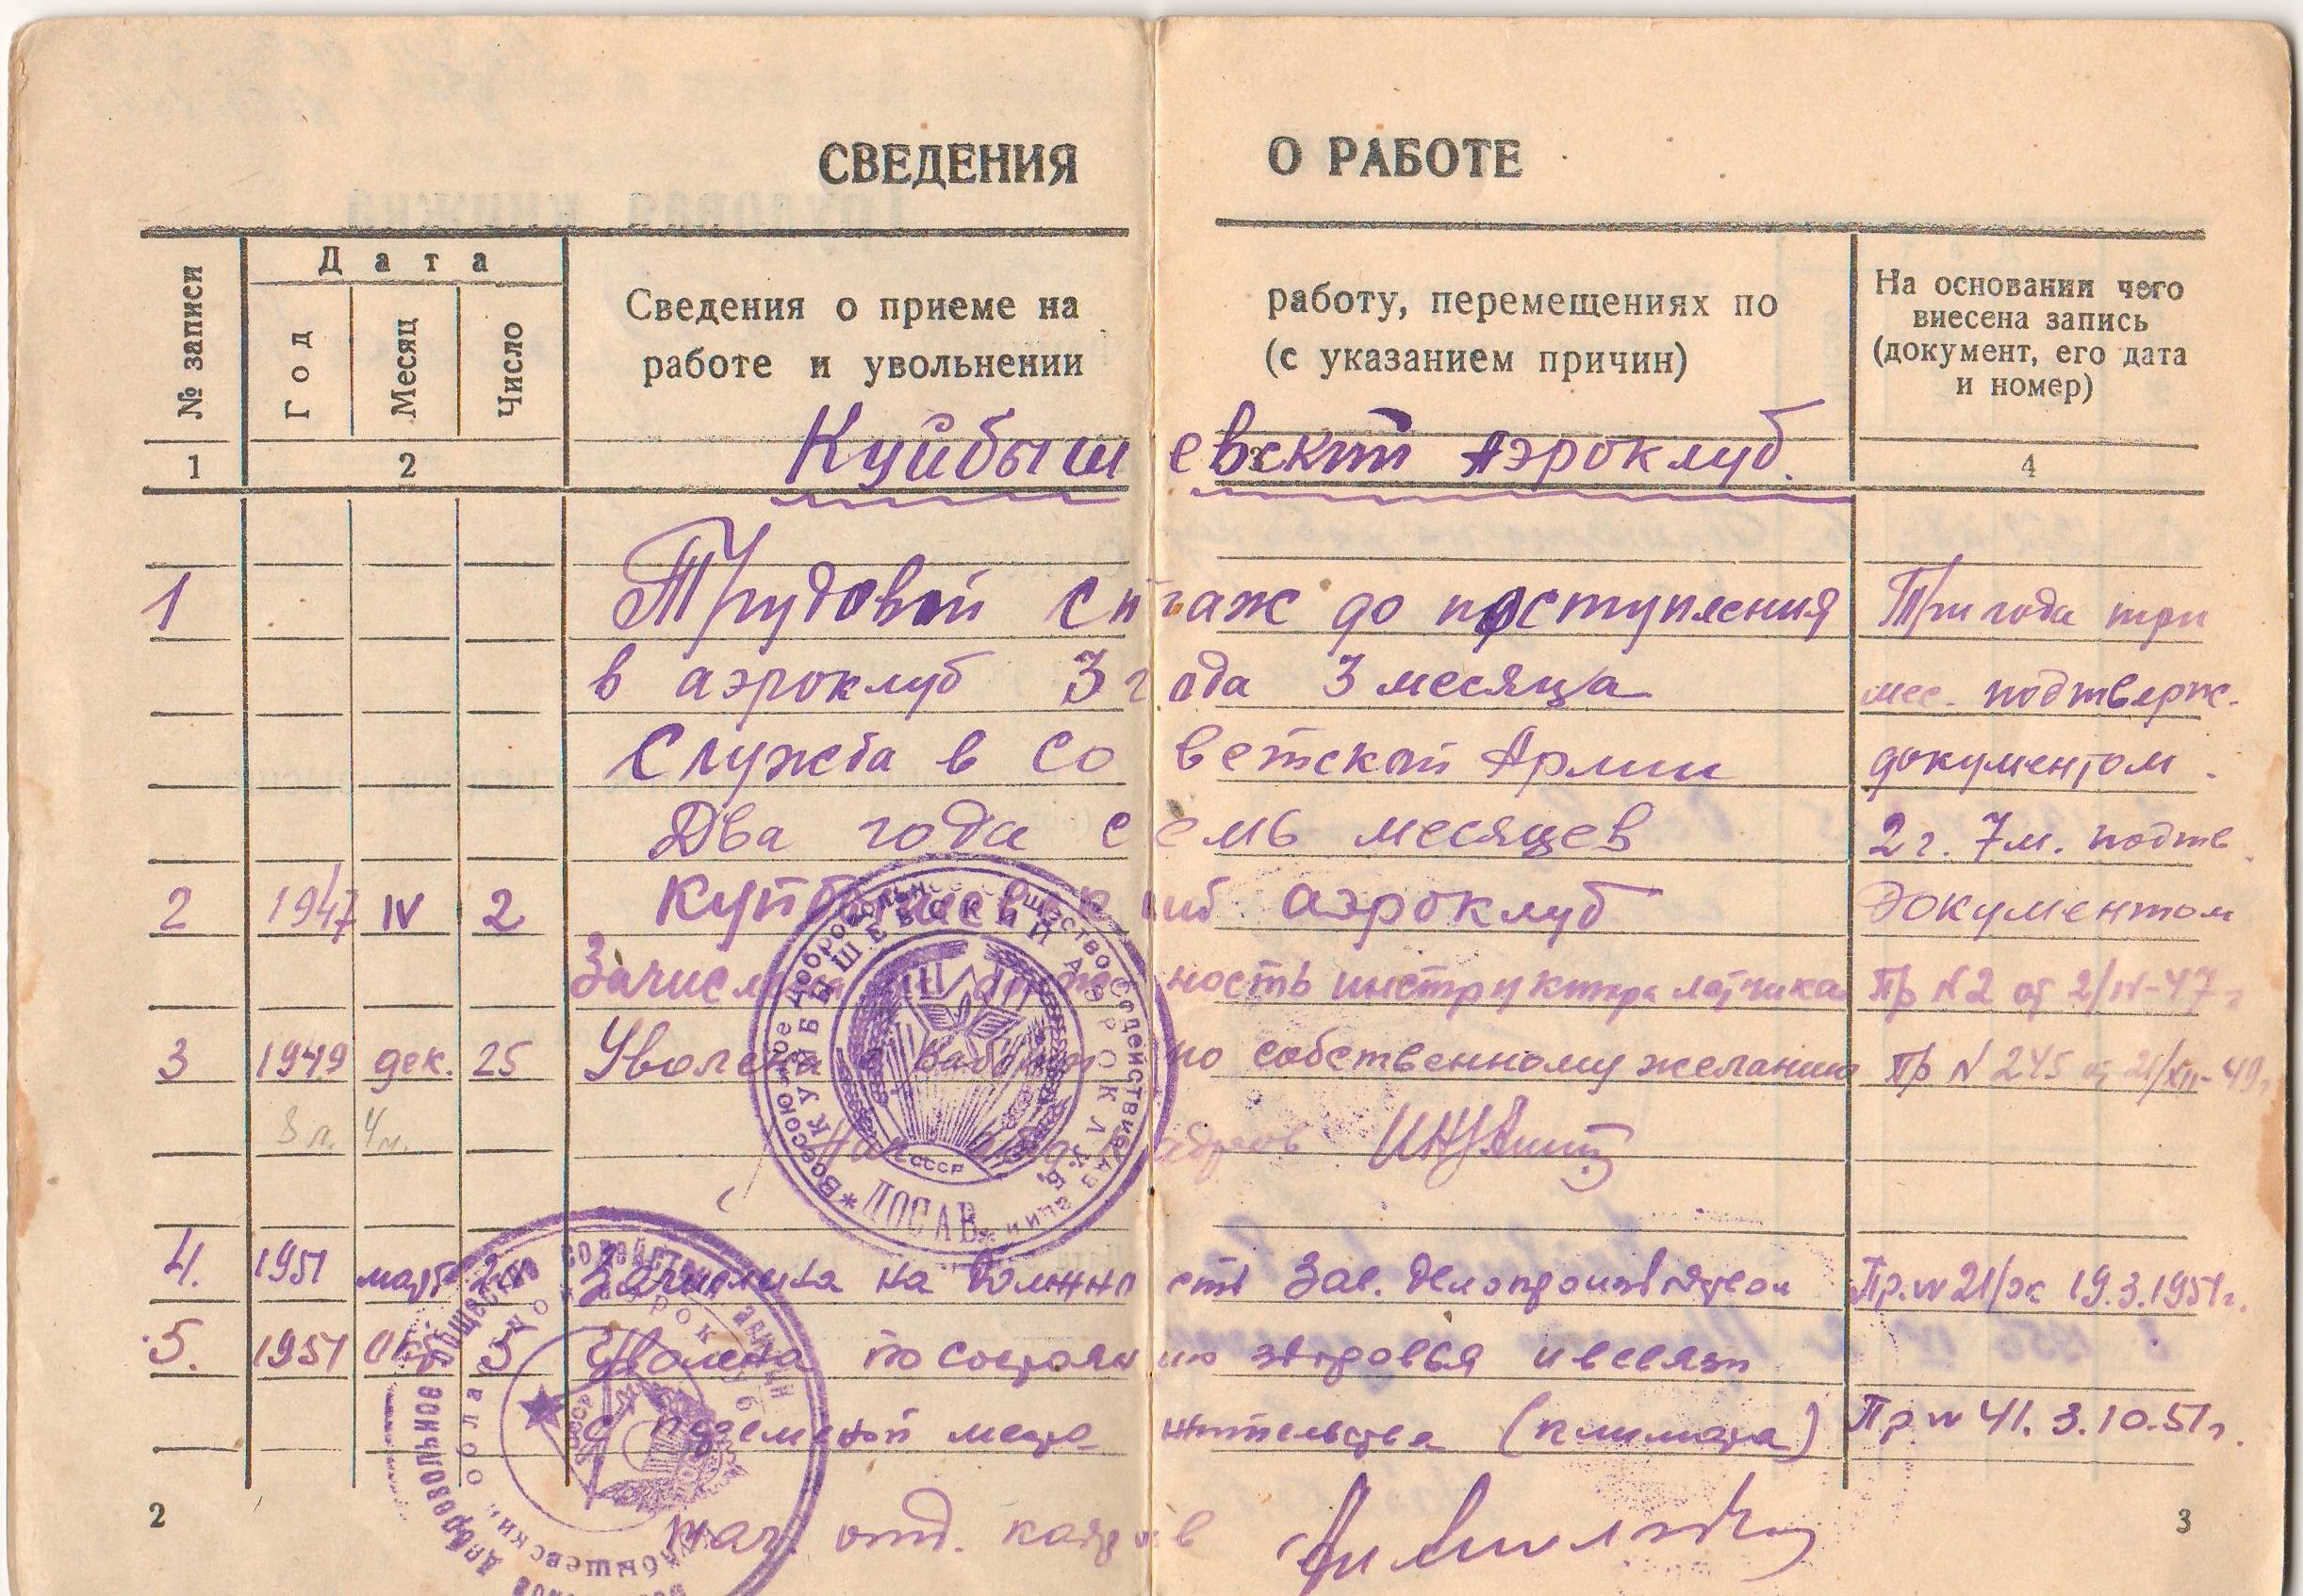 СВЕДЕНИЯ О РАБОТЕ
№ записи
Дата
Год
Месяц
Число
Сведения о приеме на работу, перемещениях по
работе и увольнении (с указанием причин)
На основании чего
внесена запись
(документ, его дата
и номер)
1 2 4
Куйбышевский Аэроклуб.
1 Трудовой стаж до поступления Три года три
в аэроклуб 3 года 3 месяца мес. подтверж.
Служба в Советской Армии документом.
Два года семь месяцев 2 г. 7 м. подтв.
2 1947 IV 2 Куйбышевский аэроклуб документом
Зачислена на должность инструктора летчика Пр N 2 от 2/IV-47 г
3 1949 дек. 25 Уволена с работы по собственному желанию Пр N 245 от 21/XII-49 г
8 л. 4 м.
Нач. отд. кадров
4. 1951 март 20 Зачислена на должность Зав. делопроизводством Пр. N 21/ок 19.3.1951 г.
5. 1951 окт 3 Уволена по состоянию здоровья и в связи
с переменой места жительства (климата) Пр N 41. 3.10.51 г.
Нач. отд. кадров
Всесоюзное добровольное общество содействия авиации
КУЙБЫШЕВСКИЙ АЭРОКЛУБ
СССР
ДОСАВ
добровольное общество содействия армии
2 3